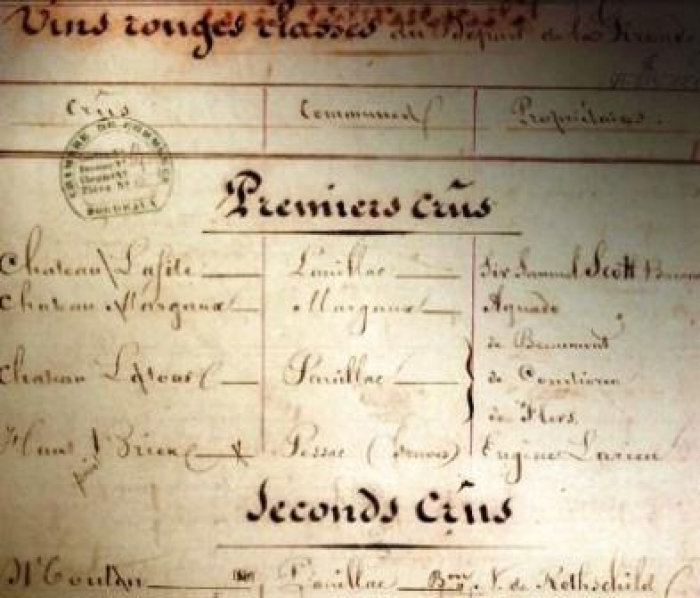 Vins rouges classés du Départ de la Gironde
Crûs Communes Propriétaires.
CHAMBRE DE COMMERCE
BORDEAUX
Premiers crûs
Chateau Lafite Pauillac Sir Samuel Scott
Chateau Margaux Margaux Aguado
de Beaumont
Chateau Latour Pauillac de Courtivron
de Flers.
Haut Brion Pessac (Graves) Eugène Larieu
Seconds Crûs
Mouton Pauillac Bon N. de Rothschild